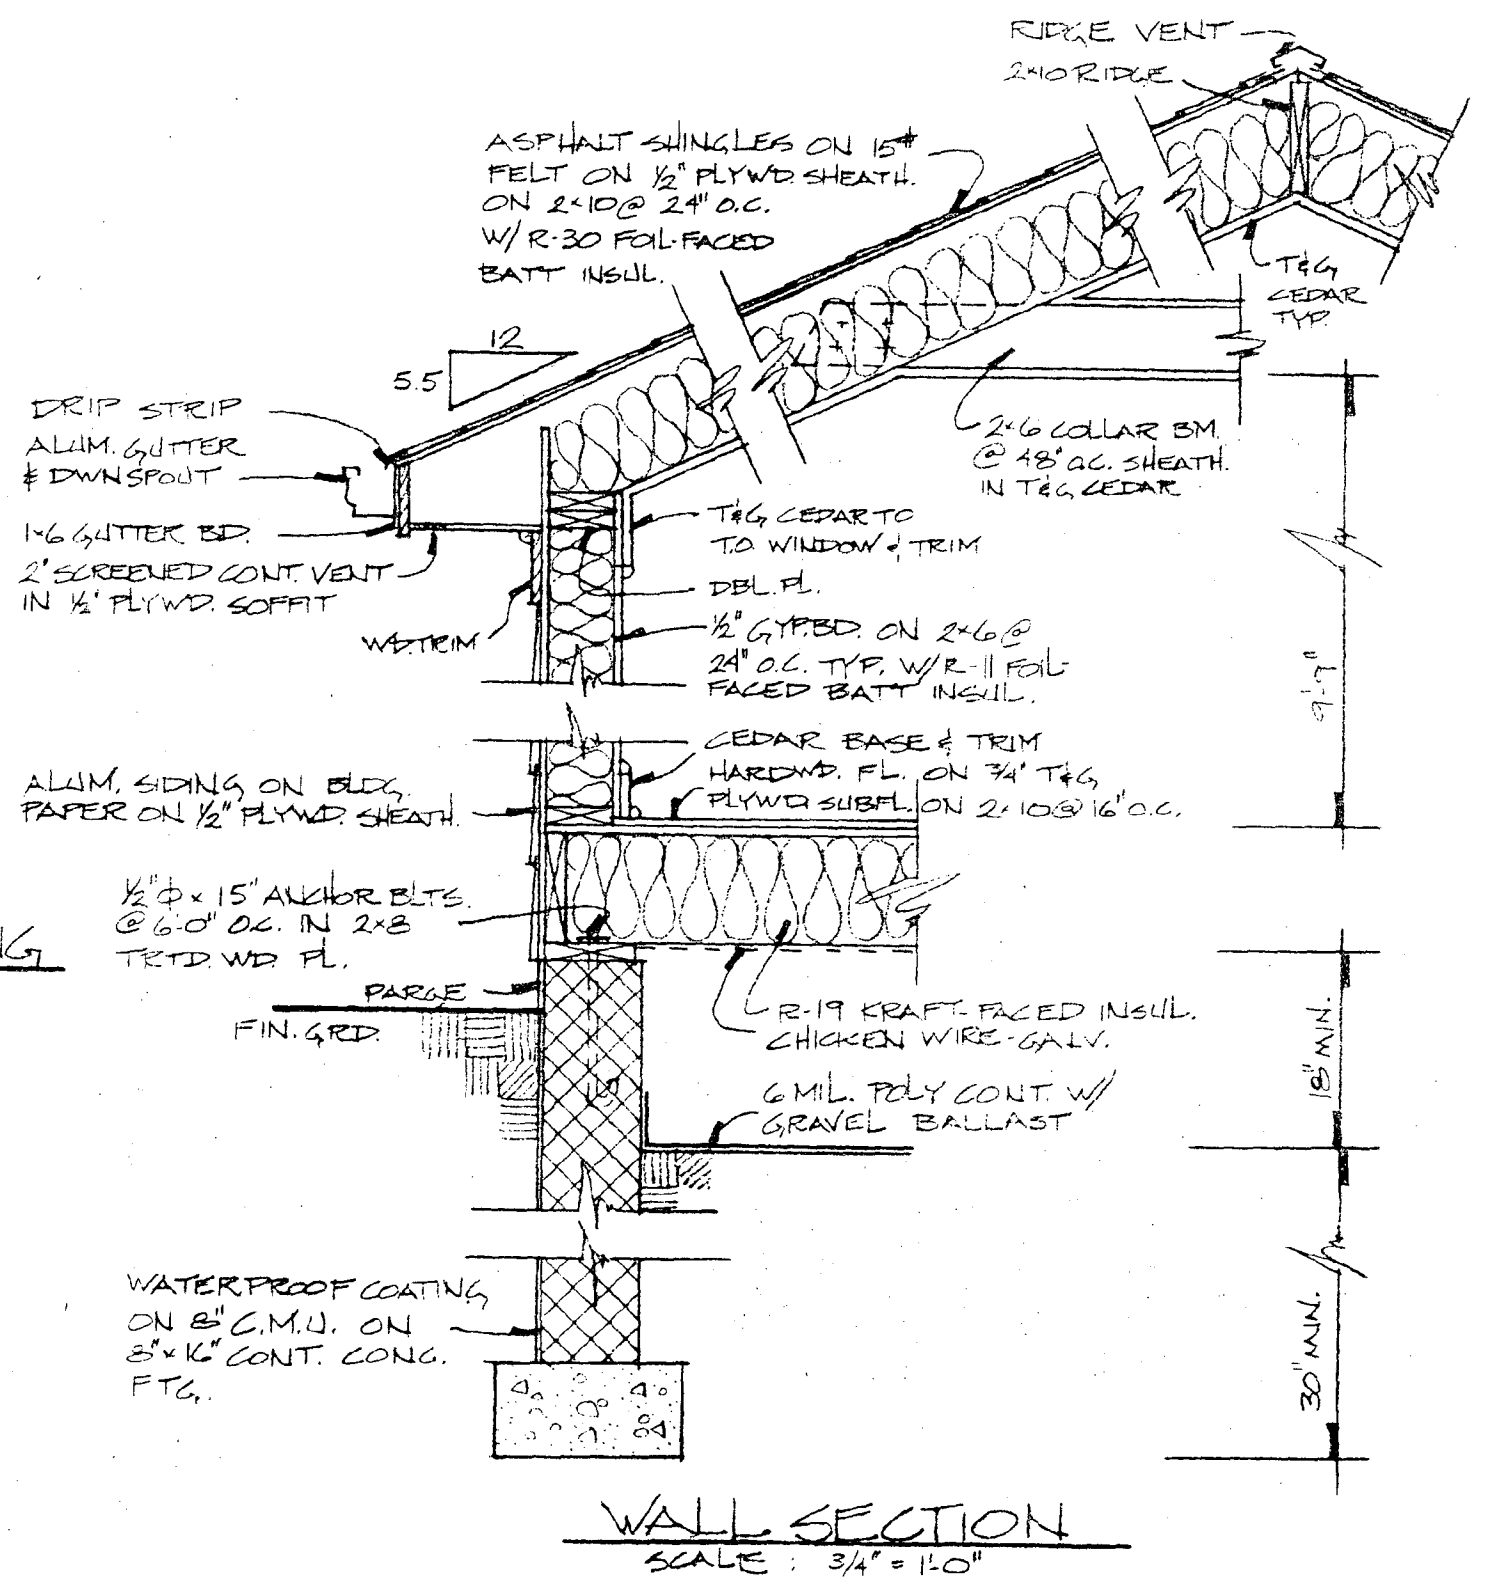 RIDGE VENT
2×10 RIDGE
ASPHALT SHINGLES ON 15#
FELT ON ½" PLYWD. SHEATH.
ON 2×10 @ 24" O.C.
W/ R-30 FOIL-FACED
BATT INSUL.
T&G
CEDAR
TYP.
12
5.5
DRIP STRIP
ALUM. GUTTER
& DWNSPOUT
1×6 GUTTER BD.
2" SCREENED CONT. VENT
IN ½" PLYWD. SOFFIT
WD. TRIM
2×6 COLLAR BM.
@ 48" O.C. SHEATH.
IN T&G CEDAR
T&G CEDAR TO
T.O. WINDOW & TRIM
DBL. PL.
½" GYP. BD. ON 2×6 @
24" O.C. TYP. W/ R-11 FOIL-
FACED BATT INSUL.
9'-7"
CEDAR BASE & TRIM
HARDWD. FL. ON ¾" T&G
PLYWD. SUBFL. ON 2×10 @ 16" O.C.
ALUM. SIDING ON BLDG.
PAPER ON ½" PLYWD. SHEATH.
½" Φ × 15" ANCHOR BLTS.
@ 6'-0" O.C. IN 2×8
TRTD. WD. PL.
NG
PARGE
FIN. GRD.
R-19 KRAFT-FACED INSUL.
CHICKEN WIRE-GALV.
18" MIN.
6 MIL. POLY CONT. W/
GRAVEL BALLAST
WATERPROOF COATING
ON 8" C.M.U. ON
8" × 16" CONT. CONC.
FTG.
30" MIN.
WALL SECTION
SCALE : 3/4" = 1'-0"